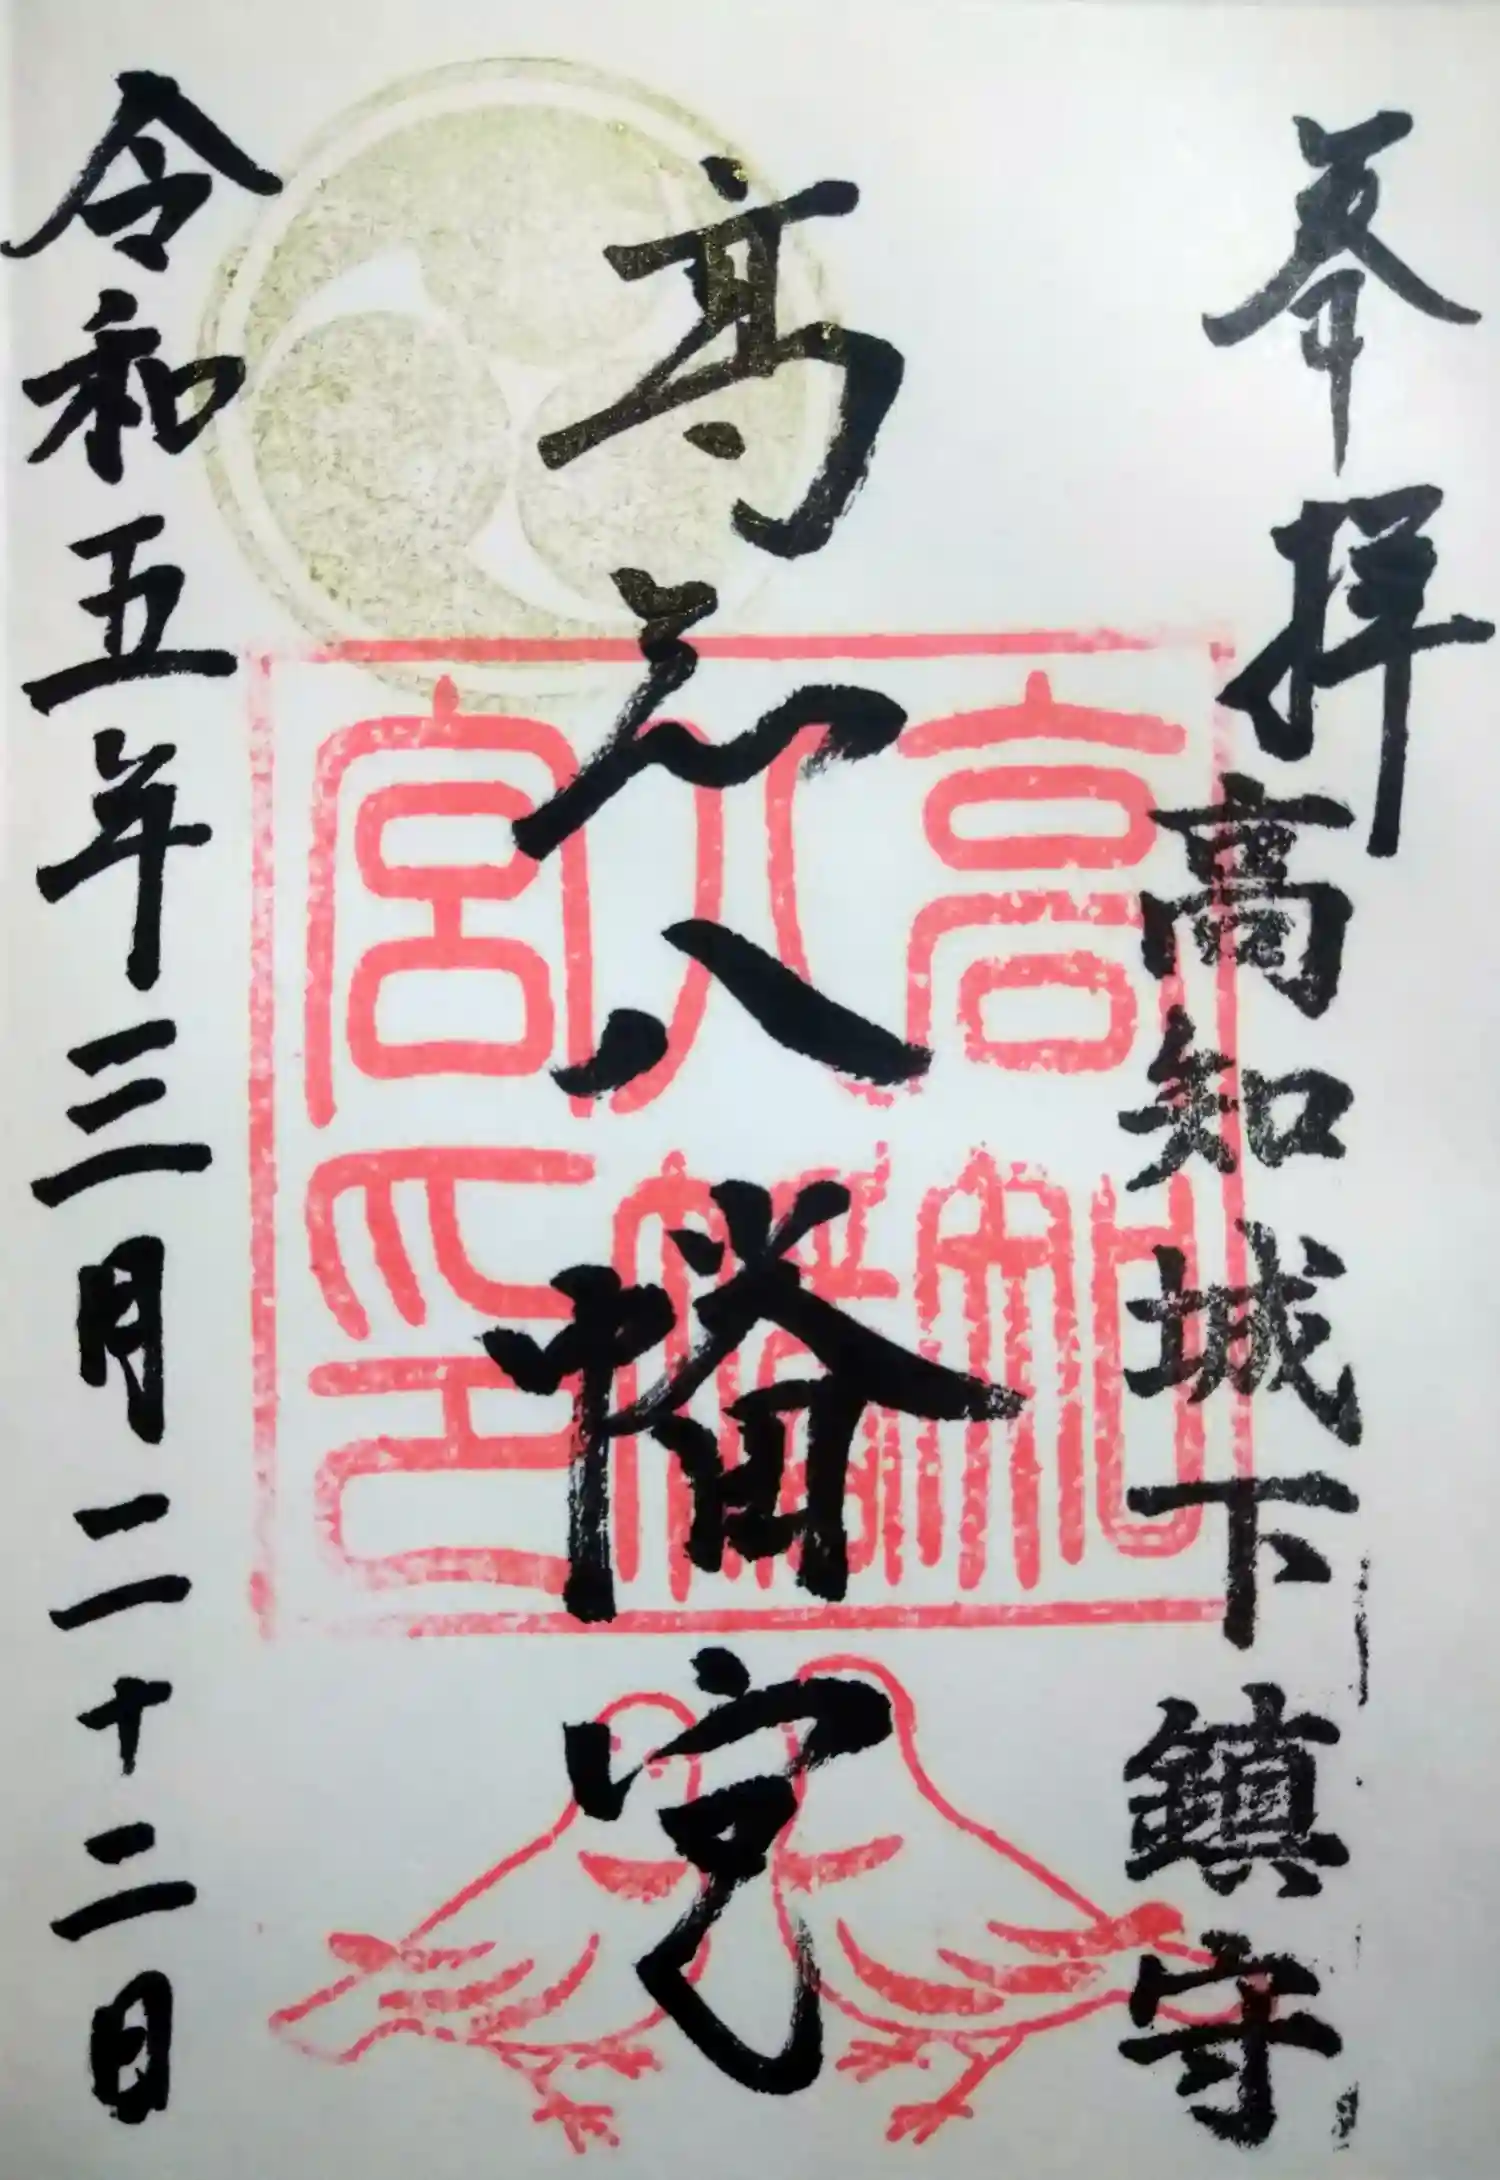 奉拝
高知城下鎮守
高知八幡宮
令和五年三月二十二日
高知
八幡
宮印